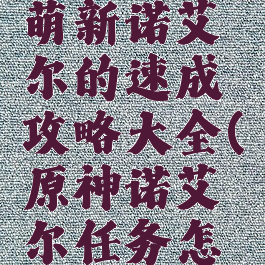 萌新诺艾
尔的速成
攻略大全(
原神诺艾
尔任务怎